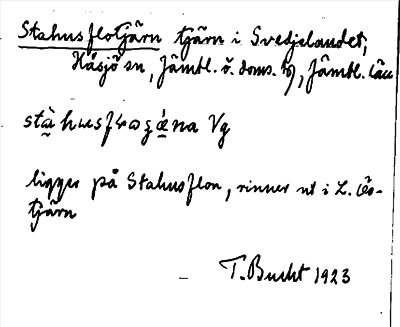 Stahusflotjärn tjärn i Svedjelandet,
Håsjö sn, Jämtl. ö. doms. tg, Jämtl. län
Vg
ligger på Stahusflon, rinner ut i L.
tjärn
T. Bucht 1923